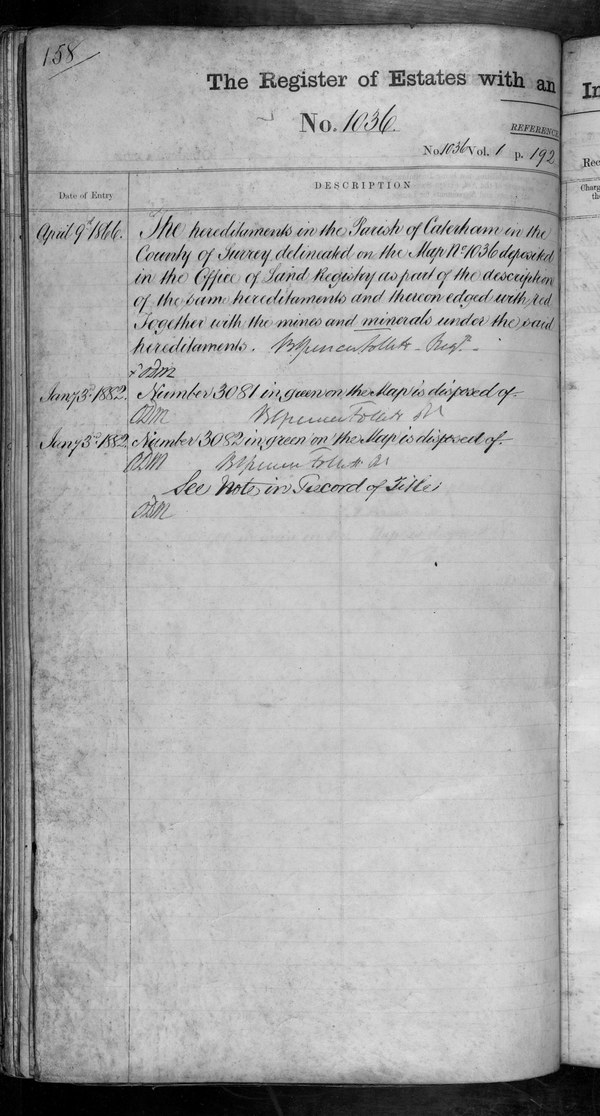 158
The Register of Estates with an
No. 1036.
REFERENCE
No. 1036 Vol. 1 p. 192
Date of Entry
DESCRIPTION
April 9th 1866. The hereditaments in the Parish of Caterham in the
County of Surrey delineated on the Map No 1036 deposited
in the Office of Land Registry as part of the description
of the same hereditaments and thereon edged with red
Together with the mines and minerals under the said
hereditaments. BSpencer Follett Regr.
Jany 3rd 1882. Number 3081 in green on the Map is disposed of
BSpencer Follett
Jany 3rd 1882. Number 3082 in green on the Map is disposed of
BSpencer Follett
See Note in Record of Title
In
Rec
Charg
the